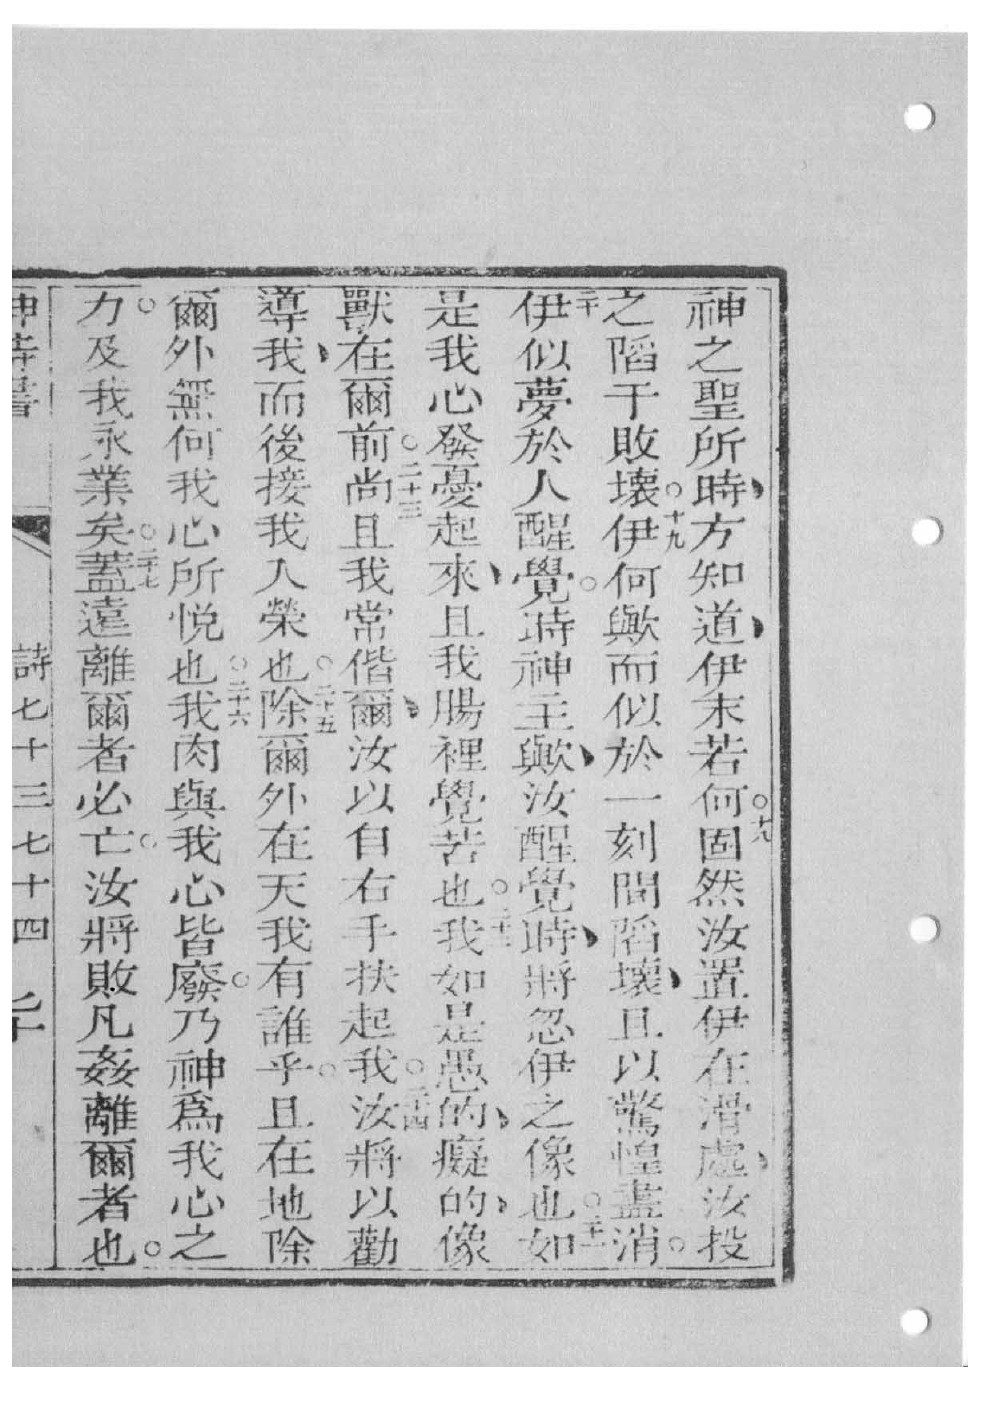 神之聖所時方知道伊末若何○十八固然汝置伊在滑處汝投
之䧟于敗壞○十九伊何歟而似於一刻間䧟壞且以驚惶盡消○
二十伊似夢於人醒覺○時神主歟汝醒覺時將忽伊之像也○二十一如
是我心發憂起來且我腸裡覺苦也○二十二我如是愚的癡的像
獸在爾前○二十三尚且我常偕爾汝以自右手扶起我○二十四汝將以勸
導我而後接我入榮也○二十五除爾外在天我有誰乎○且在地除
爾外無何我心所悅也○二十六我肉與我心皆廢○乃神為我心之
力○及我永業矣○二十七蓋遠離爾者必亡○汝將敗凡姦離爾者也○
神詩書 詩七十三七十四